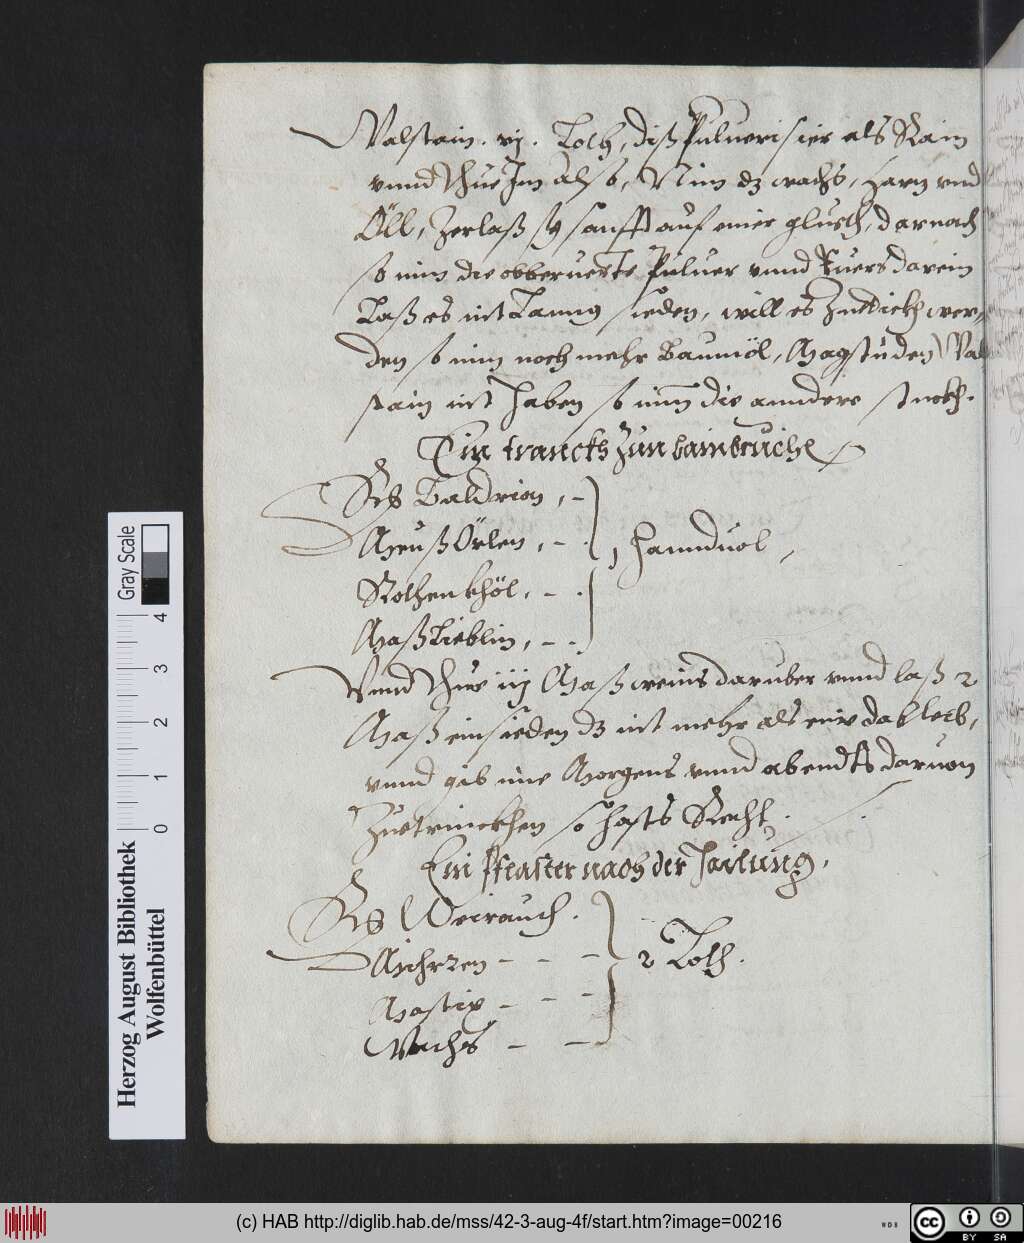 Walstain. vj. Loth, diß Puluerisier als klain
vnnd thue Im also, Nim dz wachs, Harz vnd
Öll, Zerlaß sÿ sanfft auf einer glueth, darnach
so nim die obberuerte Puluer vnnd Ruers darein
Laß es nit Lanng sieden, will es Zue dickh wer¬
den so nim noch mehr Baumöl, Magstu den Wal
stain nit haben so nim die anndere stuckh.
Ein tranckh Zum bainbruche
Rp Baldrion, –
Meußörlen, – .
Rothen khöl, – .
Maßlieblin, – – .
1 hanndtuol,
Vnnd thue iij Maß weins darüber vnnd laß 2
Maß einsieden dz nit mehr als ein da bleib,
vnnd gib ime Morgens vnnd abendts daruon
Zue trinckhen so hasts Recht.
Ein Pflaster nach der Hailung.
Rp Weirauch.
Mihrzen – – –
Mastix – – –
Wachs – –
2 Loth.
Herzog August Bibliothek
Wolfenbüttel
Gray Scale
0 1 2 3 4
(c) HAB http://diglib.hab.de/mss/42-3-aug-4f/start.htm?image=00216
WDB
cc BY SA